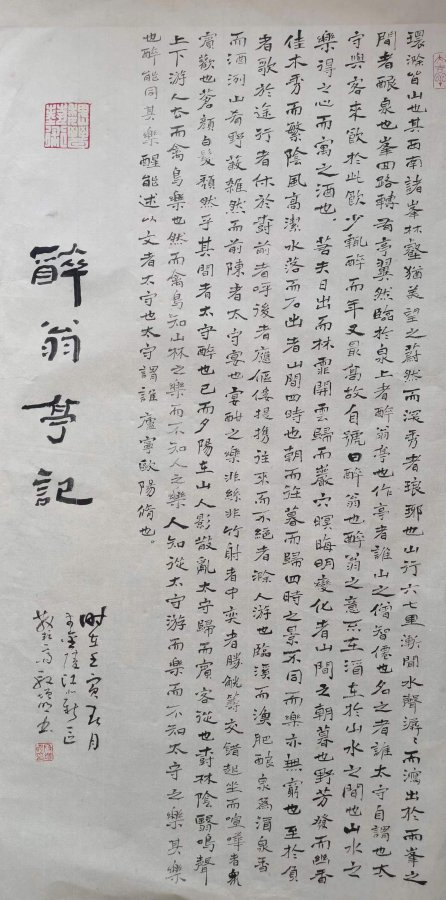 環滁皆山也其西南諸峯林壑猶美望之蔚然而深秀者琅琊也山行六七里漸聞水聲潺潺而瀉出於兩峯之
間者釀泉也峯回路轉有亭翼然臨於泉上者醉翁亭也作亭者誰山之僧智僊也名之者誰太守自謂也太
守與客來飲於此飲少輒醉而年又最高故自號曰醉翁也醉翁之意不在酒在於山水之間也山水之
樂得之心而寓之酒也若夫日出而林霏開雲歸而巖穴暝晦明變化者山間之朝暮也野芳發而幽香
佳木秀而繁陰風高潔水落而石出者山間四時也朝而往暮而歸四時之景不同而樂亦無窮也至於負
者歌於途行者休於樹前者呼後者應傴僂提攜往來而不絕者滁人游也臨溪而漁肥釀泉為酒泉香
而酒洌山肴野蔌雜然而前陳者太守宴也宴酣之樂非絲非竹射者中奕者勝觥籌交錯起坐而諠譁者衆
賓歡也蒼顏白髮頹然乎其間者太守醉也已而夕陽在山人影散亂太守歸而賓客從也樹林陰翳鳴聲
上下游人去而禽鳥樂也然而禽鳥知山林之樂而不知人之樂人知從太守游而樂而不知太守之樂其樂
也醉能同其樂醒能述以文者太守也太守謂誰廬寧歐陽脩也。
醉翁亭記
時在壬寅五月
于金陵江北新區
高書